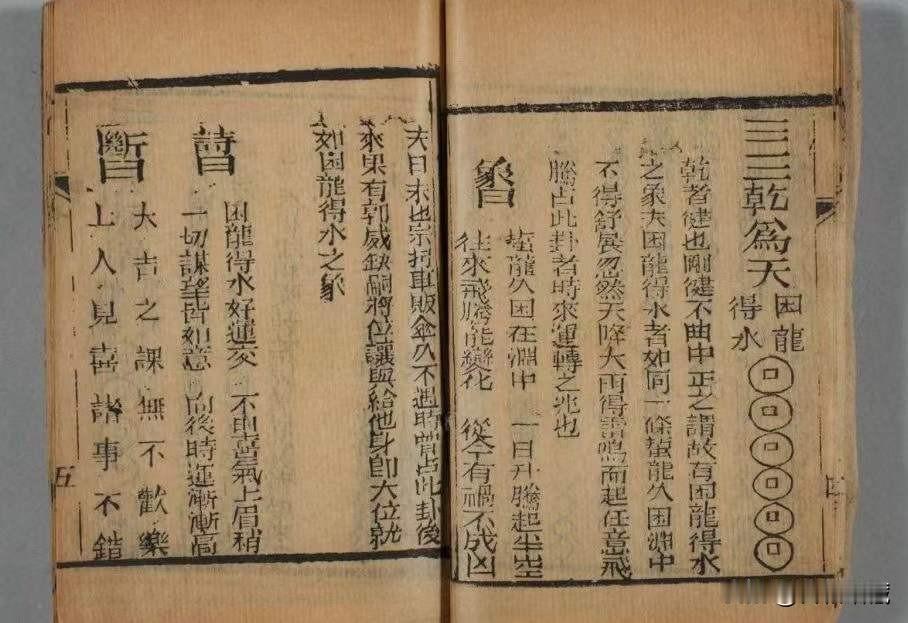 三三乾為天 困龍
得水
乾者健也剛健不曲中正之謂故有困龍得水
之象夫困龍得水者如同一條蟄龍久困淵中
不得舒展忽然天降大雨得雷鳴而起任意飛
騰占此卦者時來運轉之兆也
象曰
蟄龍久困在淵中 一日升騰起半空
往來飛騰能變化 從今有禍不成凶
宗 車販傘久不遇時曾占此卦後
來果有郭威缺嗣將位讓與給他身即大位就
如困龍得水之象
詩曰
困龍得水好運交 不由喜氣上眉稍
一切謀望皆如意 向後時運漸漸高
斷曰
大吉之課無不歡樂
上人見喜諸事不錯
五